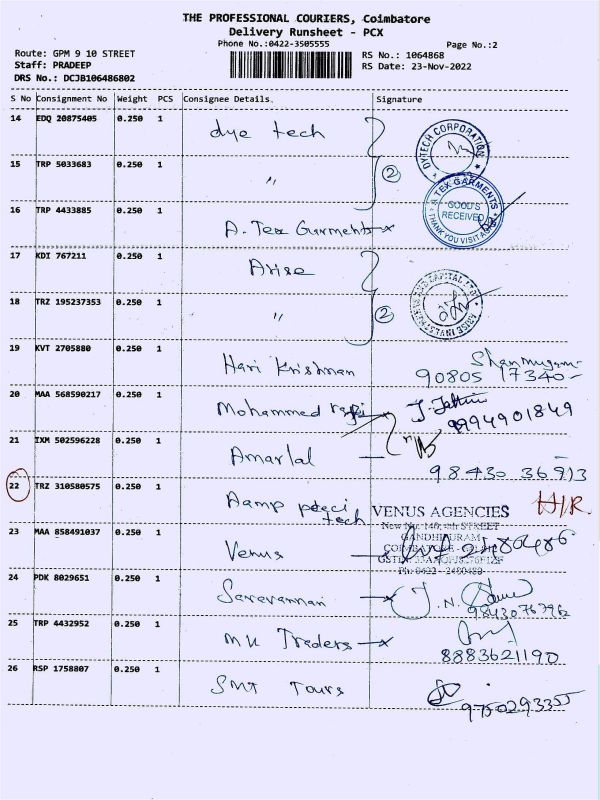 THE PROFESSIONAL COURIERS, Coimbatore
Delivery Runsheet - PCX
Phone No.:0422-3505555
Page No.:2
Route: GPM 9 10 STREET
Staff: PRADEEP
DRS No.: DCJB106486802
RS No.: 1064868
RS Date: 23-Nov-2022
S No Consignment No Weight PCS Consignee Details Signature
14 EDQ 20875405 0.250 1 dye tech
DYTECH CORPORATION
15 TRP 5033683 0.250 1 〃 2
A TEX GARMENTS
GOOD'S
RECEIVED
THANK YOU VISIT AGAIN
16 TRP 4433885 0.250 1 A. Tex Garments
17 KDI 767211 0.250 1 Arise
18 TRZ 195237353 0.250 1 〃 2
19 KVT 2705880 0.250 1 Hari Krishnan Shanmugam
90805 17340
20 MAA 568590217 0.250 1 Mohammed
9994901849
21 IXM 502596228 0.250 1 Amarlal
98430 36913
22 TRZ 310580575 0.250 1 Aamp
tech
VENUS AGENCIES
New No. 140, 4th STREET
GANDHIPURAM
Ph: 0422 - 2480480
23 MAA 858491037 0.250 1 Venus
24 PDK 8029651 0.250 1 Saravannan J. N.
9843076796
25 TRP 4432952 0.250 1 MK Traders
8883621190
26 RSP 1758807 0.250 1 SMT Tours
9750293355